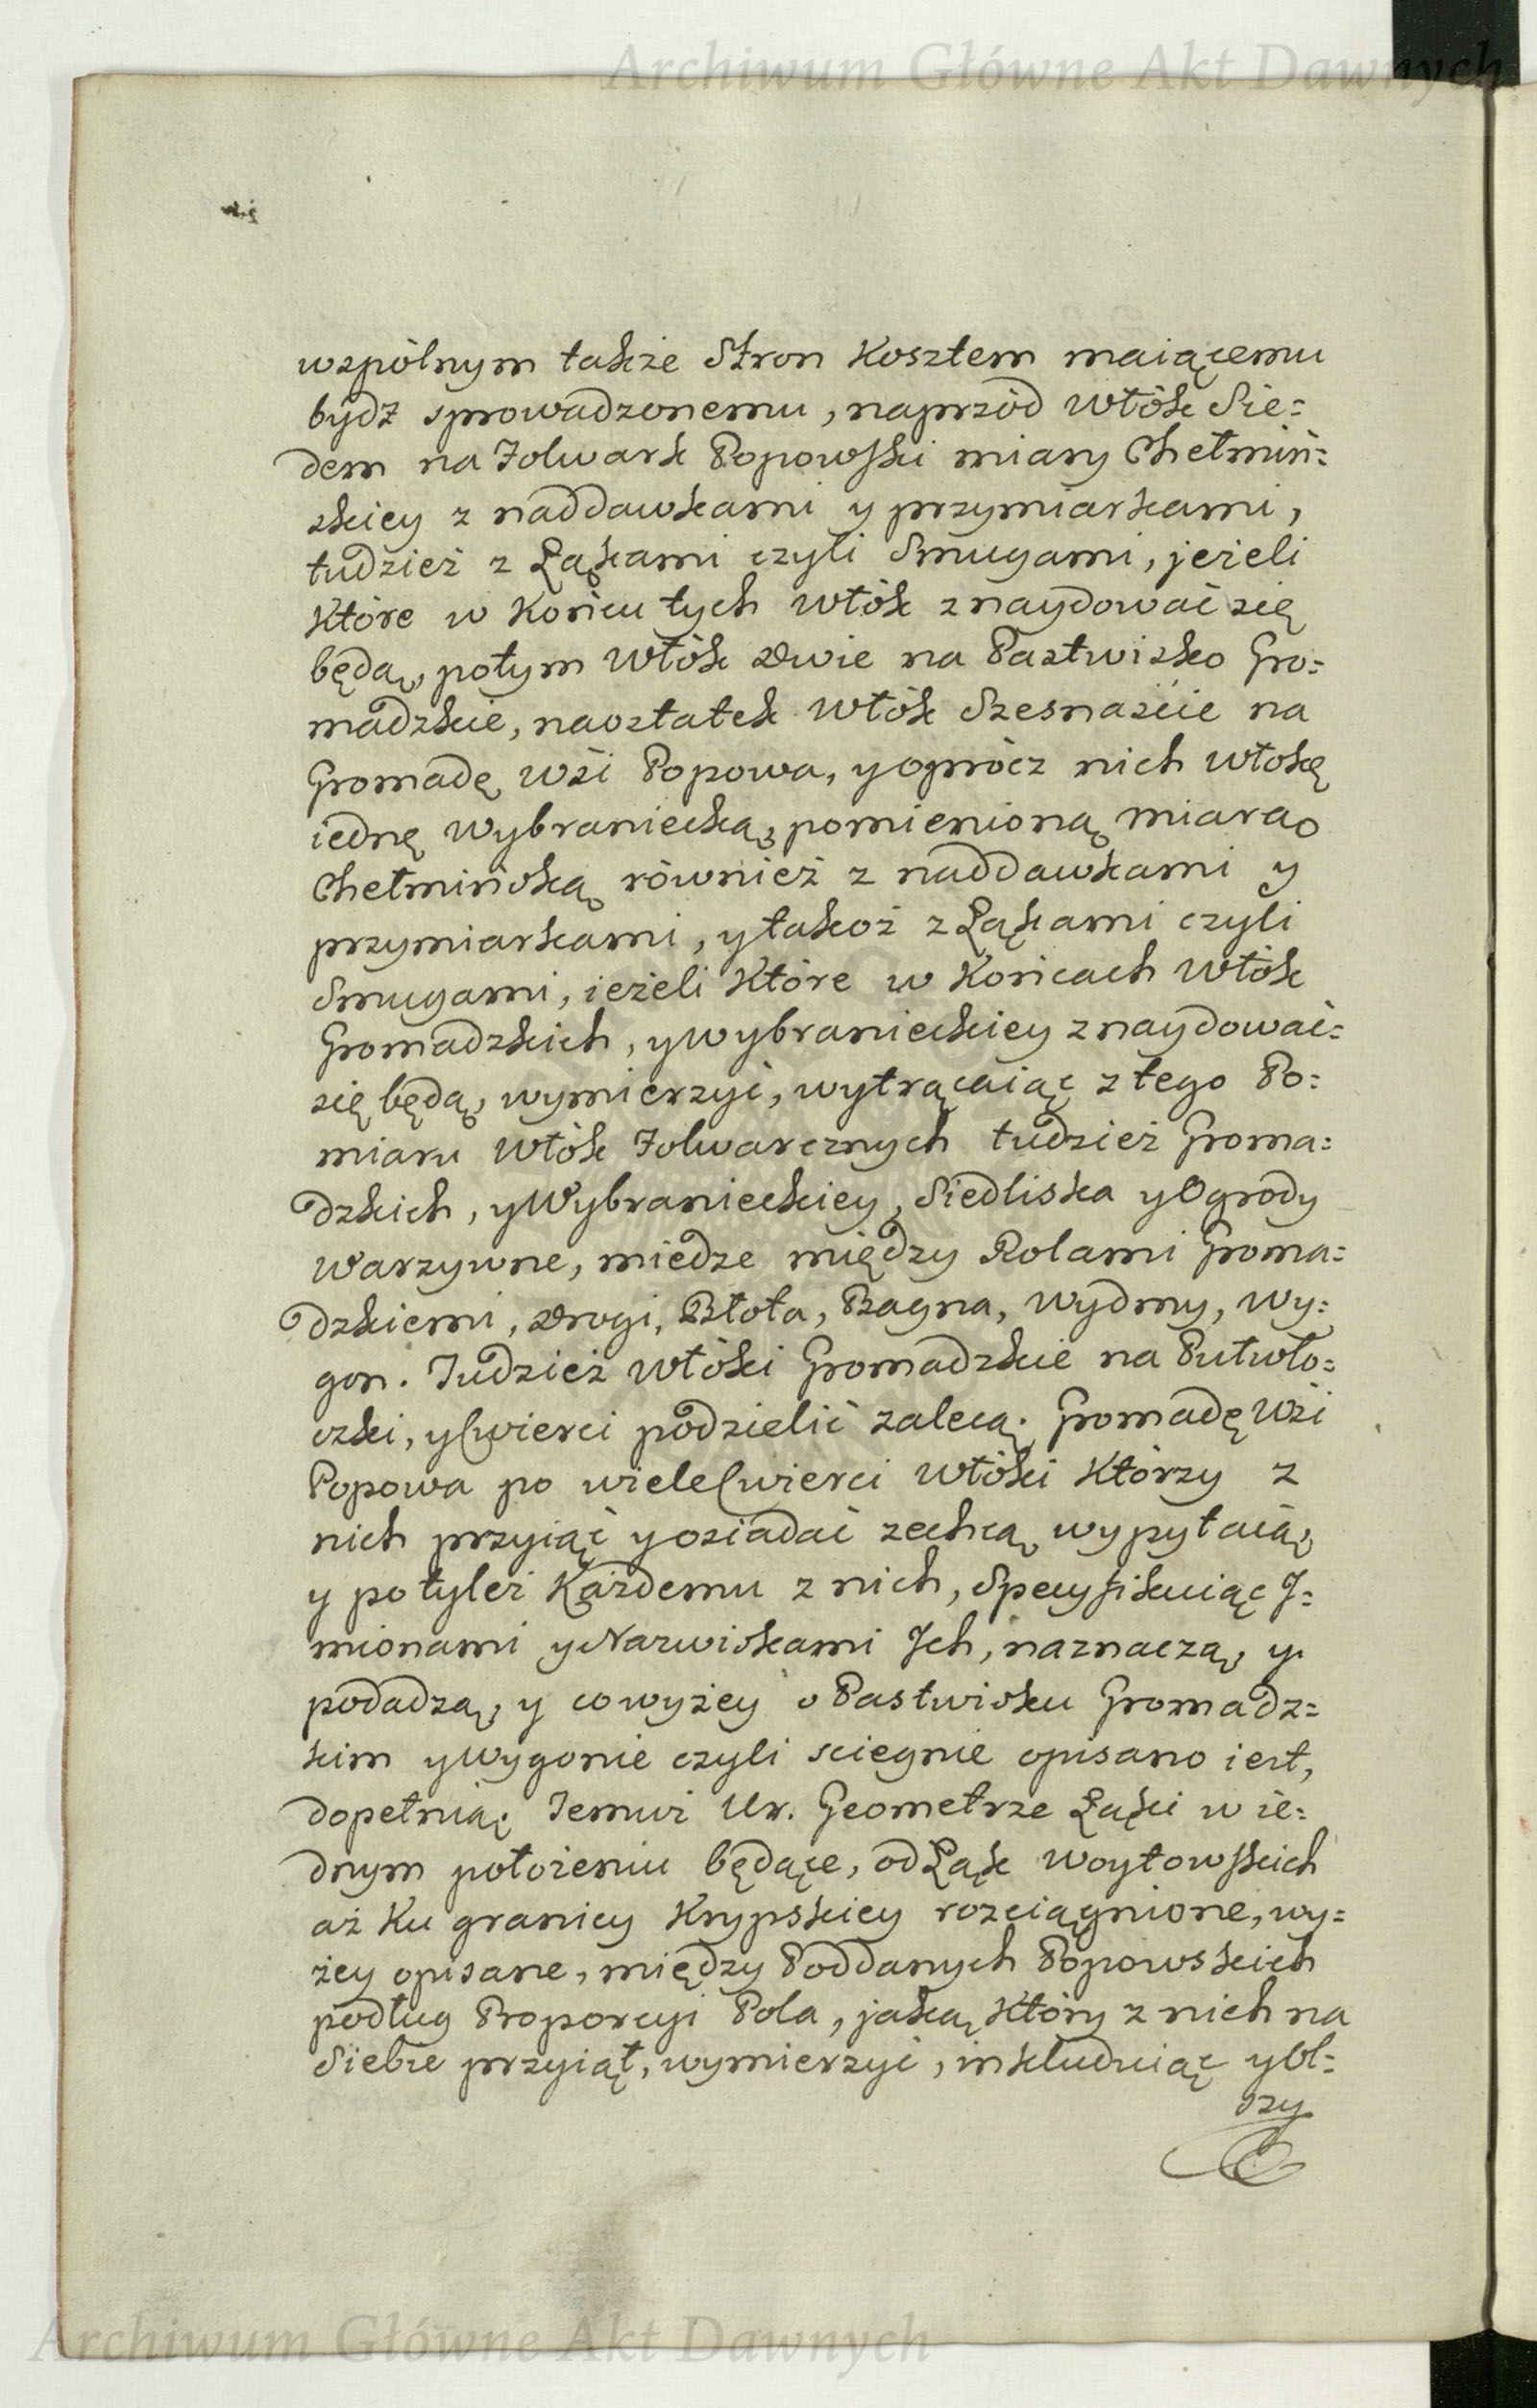 Archiwum Główne Akt Dawnych
wspólnym także Stron Kosztem maiącemu
bydz sprowadzonemu, naprzód Włók Sie=
dem na Folwark Popowski miary Chełmiń=
skiey z naddawkami y przymiarkami,
tudzież z Łąkami czyli Smugami, jeżeli
Które w Końcu tych Włók znaydować się
będą, potym Włók dwie na Pastwisko Gro=
madzkie, naostatek Włók Szesnaście na
Gromadę Wsi Popowa, y oprócz nich Włokę
iednę Wybraniecką, pomienioną miarą
Chełmińską również z naddawkami y
przymiarkami, y takoż z Łąkami czyli
Smugami, ieżeli Które w Końcach Włók
Gromadzkich, y Wybranieckiey znaydować=
się będą, wymierzyć, wytrącaiąc z tego Po=
miaru Włók Folwarcznych tudzież Groma=
dzkich, y Wybranieckiey, Siedliska y Ogrody
Warzywne, miedze między Rolami Groma=
dzkiemi, Drogi, Błota, Bagna, Wydmy, Wy=
gon. Tudzież Włóki Gromadzkie na Pułwło=
czki, y Cwierci podzielić zalecą. Gromadę Wsi
Popowa po wiele Cwierci Włóki Którzy z
nich przyiąć y osiadać zechcą, wypytaią,
y po tyleż Każdemu z nich, Specyfikuiąc J=
mionami y Nazwiskami Jch, naznaczą, y
podadzą, y co wyżey o Pastwisku Gromadz=
kim y Wygonie czyli sciegnie opisano iest,
dopełnią. Temuż Ur. Geometrze Łąki w ie=
dnym położeniu będące, od Łąk Woytowskich
aż Ku granicy Krypskiey rozciągnione, wy=
żey opisane, między Poddanych Popowskich
podług Proporcyi Pola, jaką Który z nich na
Siebie przyiął, wymierzyć, inkluduiąc y Ol=
szy
Archiwum Główne Akt Dawnych